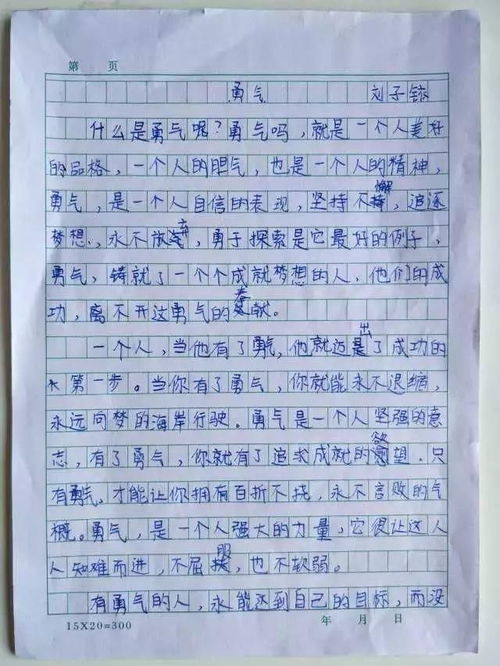 第 页
勇气 刘子铱
什么是勇气呢？勇气吗，就是一个人美好
的品格，一个人的胆气，也是一个人的精神，
勇气，是一个人自信的表现，坚持不懈，追逐
梦想、永不放弃，勇于探索是它最好的例子，
勇气，铸就了一个个成就梦想的人，他们的成
功，离不开这勇气的奉献。
一个人，当他有了勇气，他就迈出了成功的
第一步。当你有了勇气，你就能永不退缩，
永远向梦的海岸行驶。勇气是一个人坚强的意
志，有了勇气，你就有了追求成就的欲望．只
有勇气．才能让你拥有百折不挠，永不言败的气
概。勇气，是一个人强大的力量，它很让这人
人知难而进，不屈服，也不软弱。
有勇气的人，永能达到自己的目标，而没
15X20=300 年 月 日